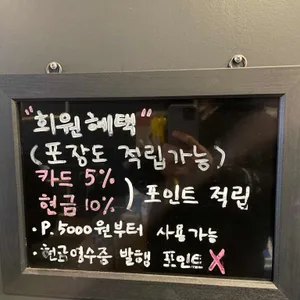 "회원 혜택"
(포장도 적립가능)
카드 5%
현금 10% ) 포인트 적립
· P. 5000원부터 사용가능
· 현금영수증 발행 포인트 X